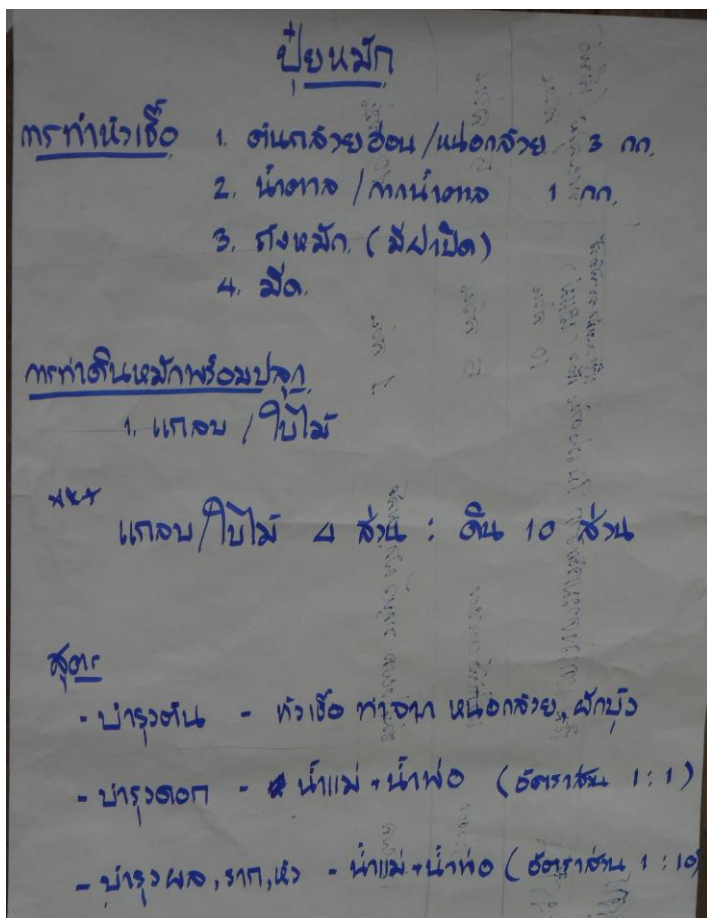 ปุ๋ยหมัก
การทำหัวเชื้อ 1. ต้นกล้วยอ่อน/หน่อกล้วย 3 กก.
2. น้ำตาล/กากน้ำตาล 1 กก.
3. ถังหมัก. (มีฝาปิด)
4. มีด.
การทำดินหมักพร้อมปลูก
1. แกลบ/ใบไม้
*** แกลบ/ใบไม้ 4 ส่วน : ดิน 10 ส่วน
สูตร
- บำรุงต้น - หัวเชื้อ ทำจาก หน่อกล้วย, ผักบุ้ง
- บำรุงดอก - น้ำแม่ + น้ำพ่อ (อัตราส่วน 1:1)
- บำรุงผล, ราก, หัว - น้ำแม่ + น้ำพ่อ (อัตราส่วน 1:10)